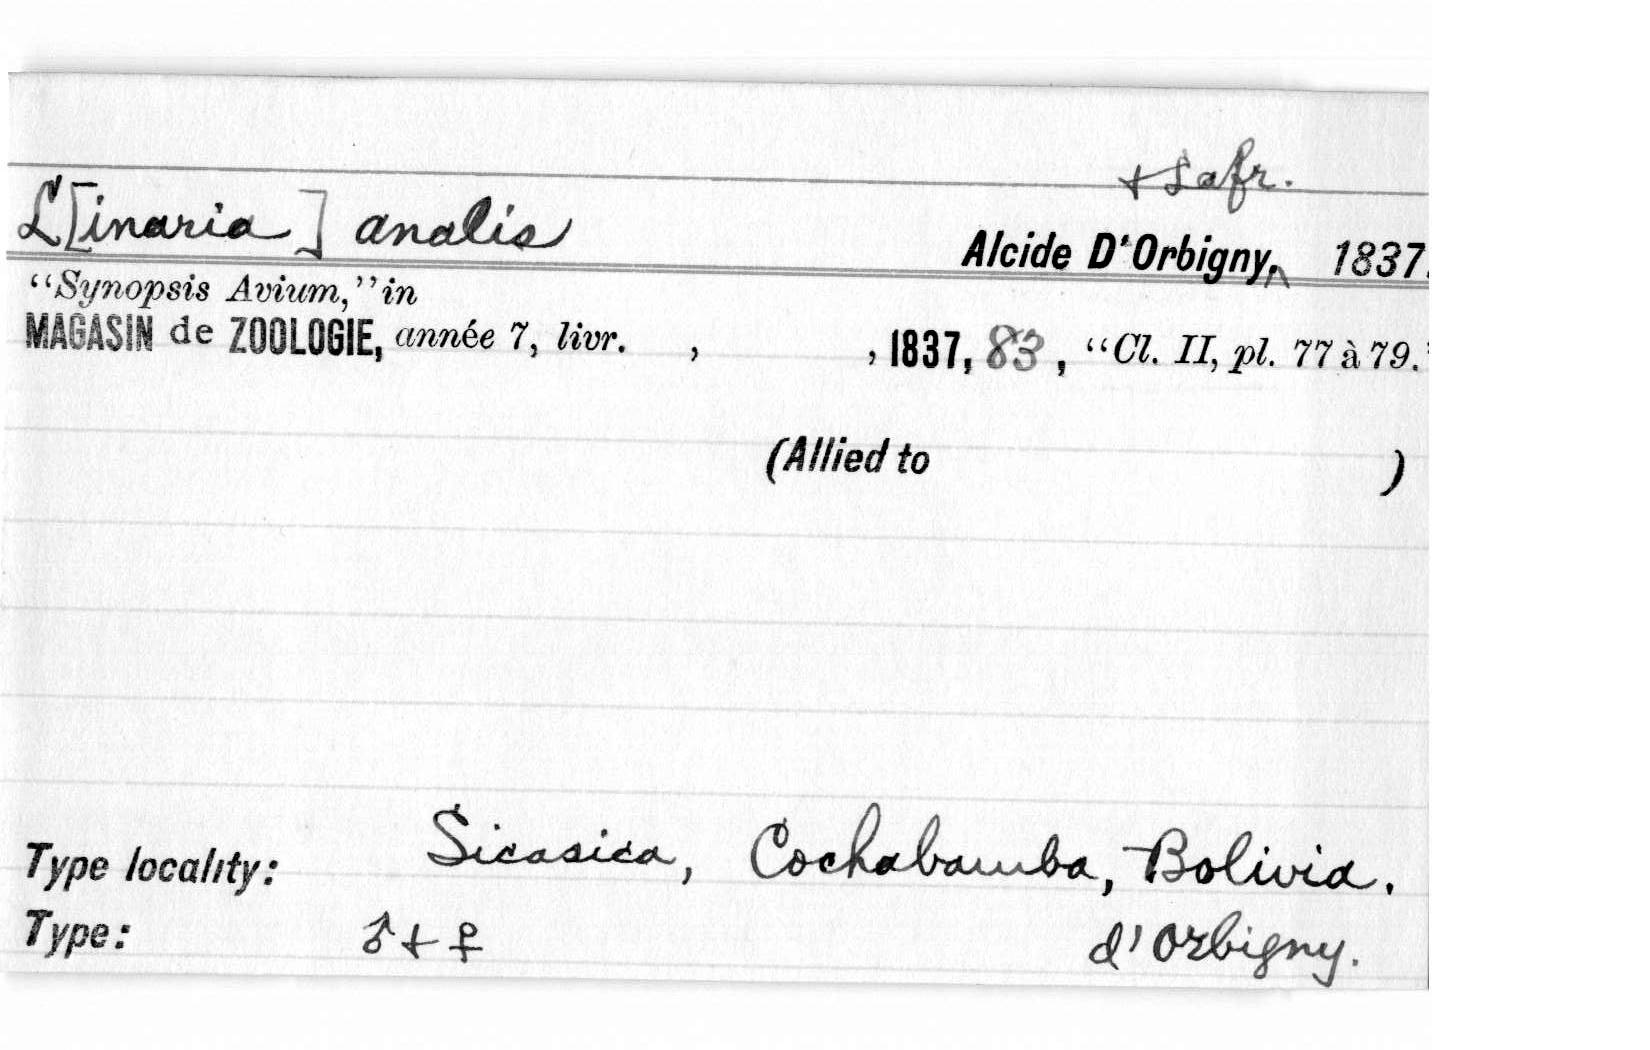 + Lafr.
L[inaria] analis
Alcide D'Orbigny,^ 1837.
"Synopsis Avium," in
MAGASIN de ZOOLOGIE, année 7, livr. , , 1837, 83, "Cl. II, pl. 77 à 79."
(Allied to )
Type locality: Sicasica, Cochabamba, Bolivia.
Type: ♂ + ♀ d'Orbigny.